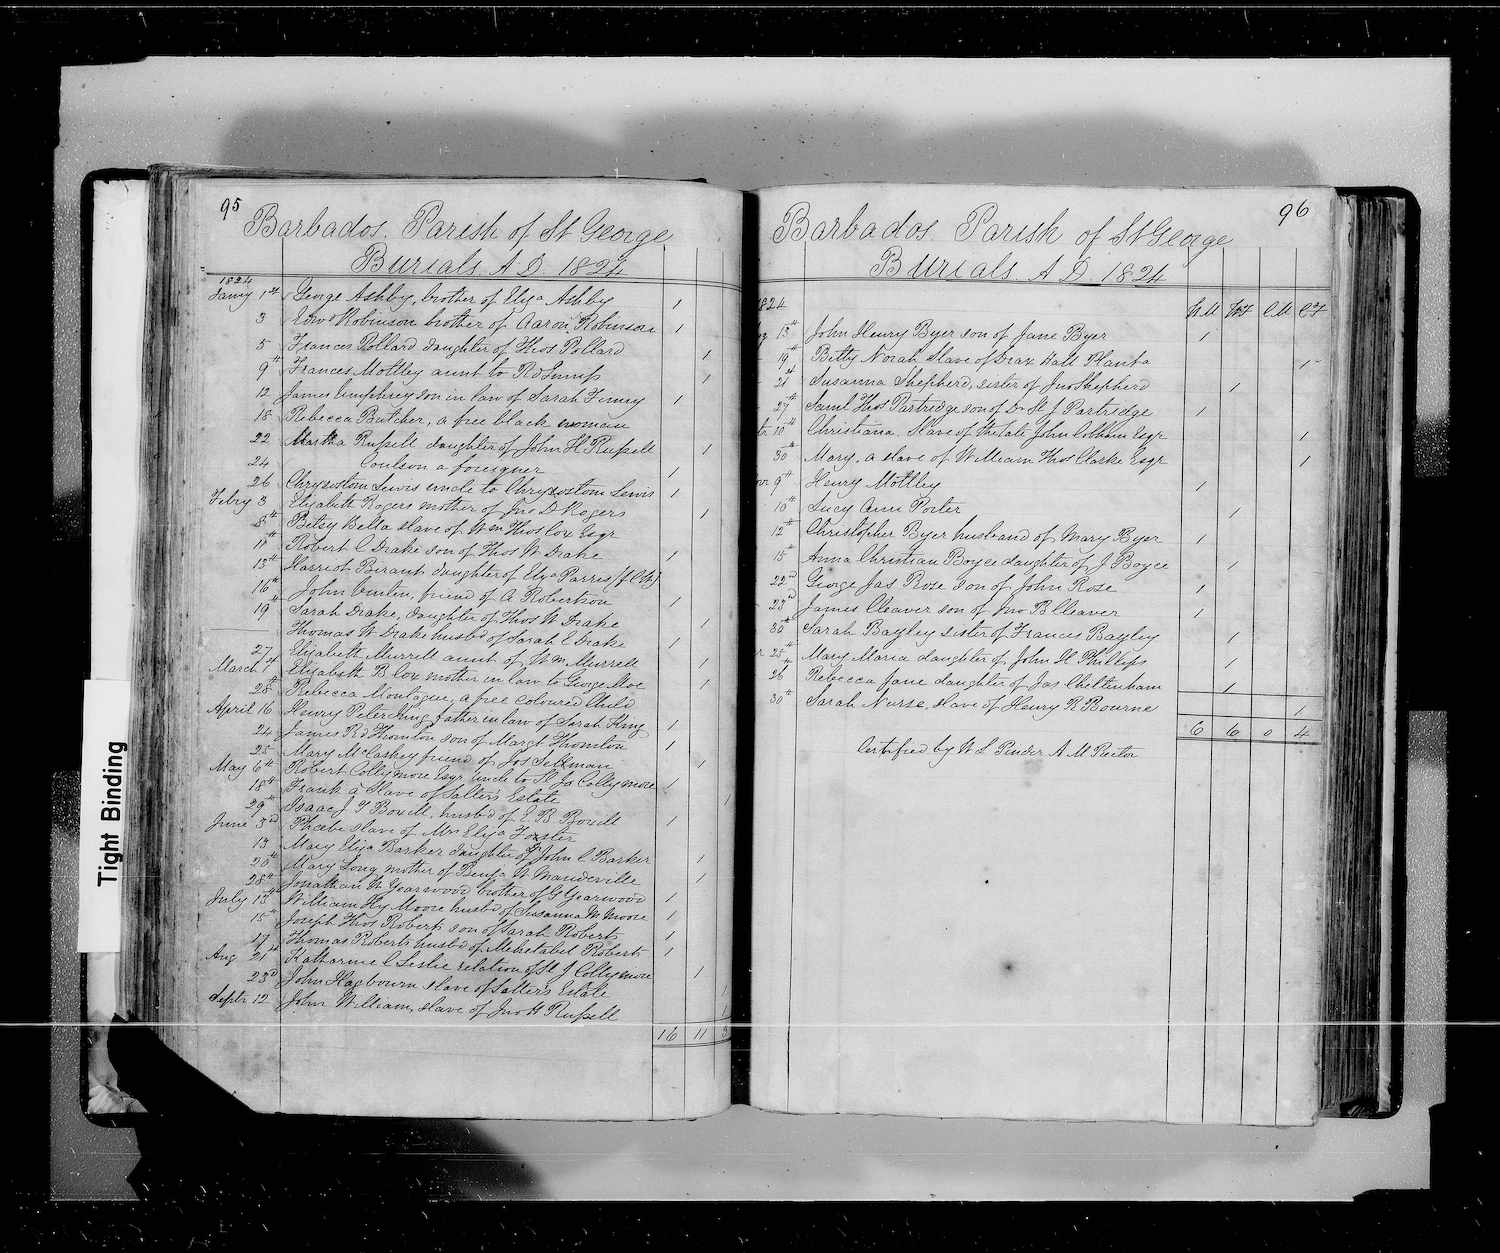 95
Barbados. Parish of St George
Burials A D 1824
1824
Jany 1st George Ashby, brother of Eliza Ashby 1
3 Edwd Robinson brother of Aaron Robinson 1
5 Frances Pollard daughter of Thos Pollard 1
9th Frances Mottley aunt to Rd 1
12 James Umphrey son in law of Sarah Finney 1
18 Rebecca Butcher, a free black woman
22 Martha Russell daughter of John H Russell 1
24 Coulson a foreigner 1
26 Chrysostom Lewis uncle to Chrysostom Lewis 1
Febry 3 Elizabeth Rogers mother of Jno D Rogers 1
8th Betsy Bella slave of Wm Thos Cox Esqr
11th Robert C Drake son of Thos W Drake 1
13th Harriot Birant daughter of Eliza Parris (f.C.W)
16th John friend of A Robertson 1
19th Sarah Drake, daughter of Thos W Drake 1
Thomas W Drake husbd of Sarah E Drake 1
27 Elizabeth Murrell aunt of Wm Murrell 1
March 1st Elizabeth B Cox mother in law to George Moe 1
28th Rebecca Montague, a free coloured Child
April 16 Henry Peter King father in law of Sarah King 1
24 James Rd Thornton son of Margt Thornton 1
25 Mary McCaskey friend of Jos Sellman 1
May 6th Robert Collymore Esqr uncle to H Jo Collymore 1
18th Frank a Slave of Salters Estate 1
29th Isaac J T Bovell, husbd of E. B. Bovell 1
June 3d Phoebe slave of Mrs Eliza Forster
13 Mary Eliza Barker daughter of John C Barker 1
20th Mary Long mother of Benja W Mandeville 1
28th Jonathan W Yearwood brother of G Yearwood 1
July 13th William Hy Moore husbd of Susanna M Moore 1
15th Joseph Thos Roberts son of Sarah Roberts 1
17 Thomas Roberts husbd of Mehetabel Roberts 1
Aug 21st Katharine C Leslie relation of H J Collymore 1
23d John Hagbourn slave of Salters Estate 1
Septr 12 John William, slave of Jno H Russell 1
16 11 3
96
Barbados. Parish of St George
Burials A D 1824
1824 W M W F C M C F
13th John Henry Byer son of Jane Byer 1
19th Betty Norah slave of Drax Hall Planta 1
21st Susanna Shepherd, sister of Jno Shepherd 1
27th Saml Thos Partridge son of Dr St J Partridge 1
10th Christiana, Slave of the late John Cotham Esqr 1
30th Mary, a slave of William Thos Clarke Esqr 1
9th Henry Mottley 1
10th Lucy Ann Porter 1
12th Christopher Byer husband of Mary Byer 1
15th Anna Christian Boyce daughter of J Boyce 1
22d George Jas Rose son of John Rose 1
23d James Cleaver son of Jno B Cleaver 1
30th Sarah Bayley sister of Frances Bayley 1
25th Mary Maria daughter of John H Phillips 1
26th Rebecca Jane daughter of Jas Cheltenham 1
30th Sarah Nurse, slave of Henry R Bourne 1
6 6 0 4
Certified by W L Pinder A M Rector
Tight Binding